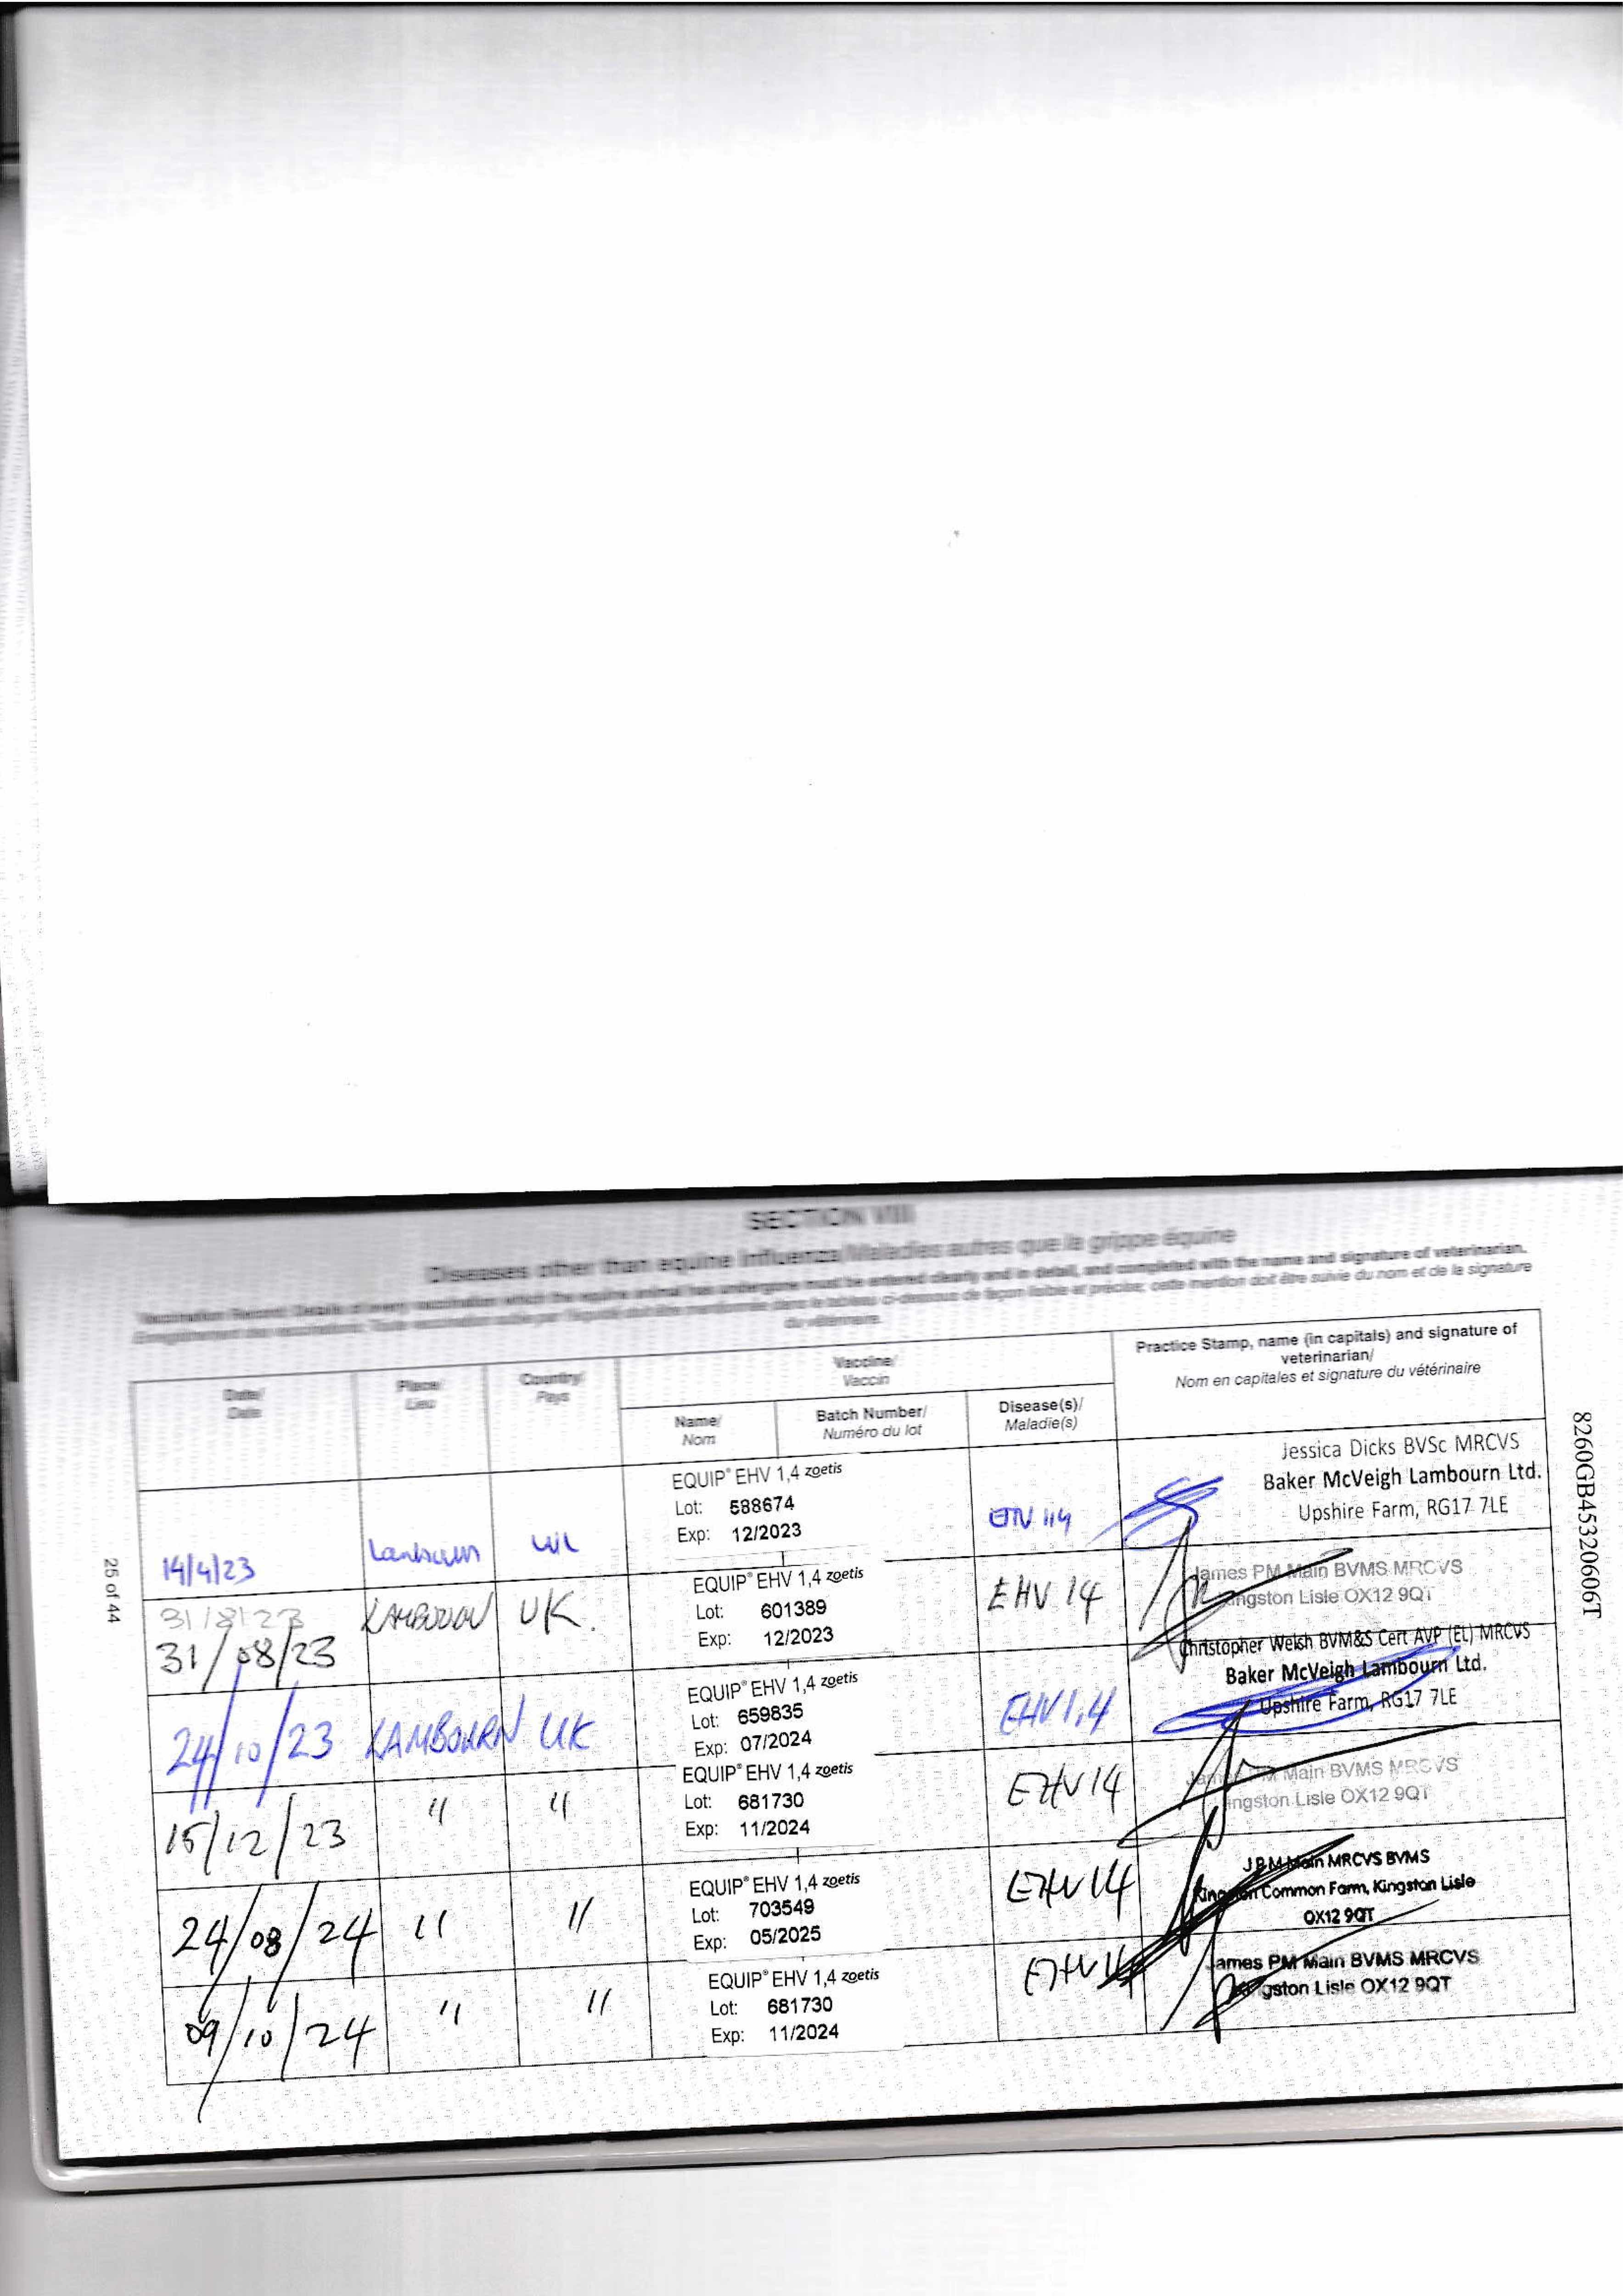 SECTION VIII
Diseases other than equine influenza/Maladies autres que la grippe équine
Vaccination Record: Details of every vaccination which the equine animal has undergone must be entered clearly and in detail, and completed with the name and signature of veterinarian.
Enregistrement des vaccinations: Toute vaccination subie par l'équidé doit être mentionnée dans le tableau ci-dessous de façon lisible et précise; cette mention doit être suivie du nom et de la signature
du vétérinaire.
Date/
Date
Place/
Lieu
Country/
Pays
Vaccine/
Vaccin
Name/
Nom
Batch Number/
Numéro du lot
Disease(s)/
Maladie(s)
Practice Stamp, name (in capitals) and signature of
veterinarian/
Nom en capitales et signature du vétérinaire
14/4/23
Lambourn
UK
EQUIP® EHV 1,4 zoetis
Lot: 588674
Exp: 12/2023
Jessica Dicks BVSc MRCVS
Baker McVeigh Lambourn Ltd.
Upshire Farm, RG17 7LE
31/8/23
31/08/23
LAMBOURN
UK.
EQUIP® EHV 1,4 zoetis
Lot: 601389
Exp: 12/2023
EHV 14
James PM Main BVMS MRCVS
Kingston Lisle OX12 9QT
24/10/23
LAMBOURN
UK
EQUIP® EHV 1,4 zoetis
Lot: 659835
Exp: 07/2024
EHV1,4
Christopher Welsh BVM&S Cert AVP (EL) MRCVS
Baker McVeigh Lambourn Ltd.
Upshire Farm, RG17 7LE
15/12/23
"
"
EQUIP® EHV 1,4 zoetis
Lot: 681730
Exp: 11/2024
EHV14
James PM Main BVMS MRCVS
Kingston Lisle OX12 9QT
24/08/24
"
"
EQUIP® EHV 1,4 zoetis
Lot: 703549
Exp: 05/2025
EHV14
J P M Main MRCVS BVMS
Kingston Common Farm, Kingston Lisle
OX12 9QT
09/10/24
"
"
EQUIP® EHV 1,4 zoetis
Lot: 681730
Exp: 11/2024
EHV14
James PM Main BVMS MRCVS
Kingston Lisle OX12 9QT
25 of 44
8260GB45320606T